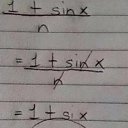 1 + sinx
n
= 1 + sin x
n
= 1 + six